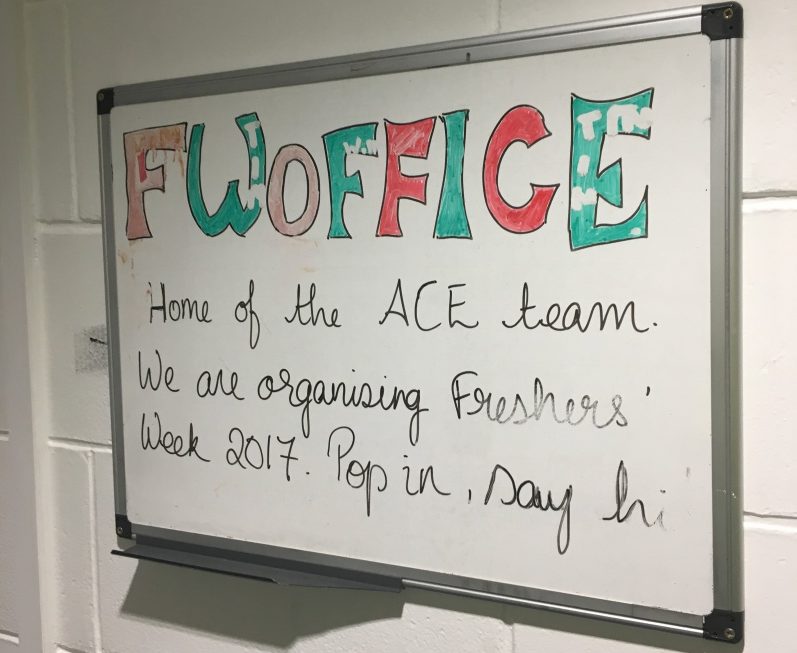 FWOFFICE
Home of the ACE team.
We are organising Freshers'
Week 2017. Pop in, say hi